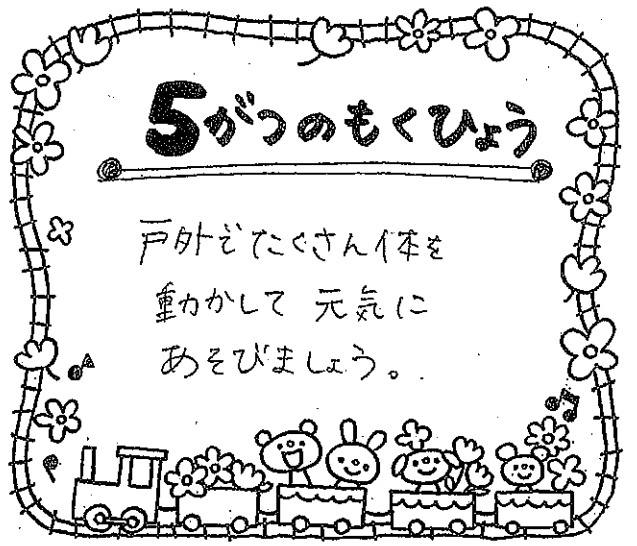 5がつのもくひょう
戸外でたくさん体を
動かして 元気に
あそびましょう。